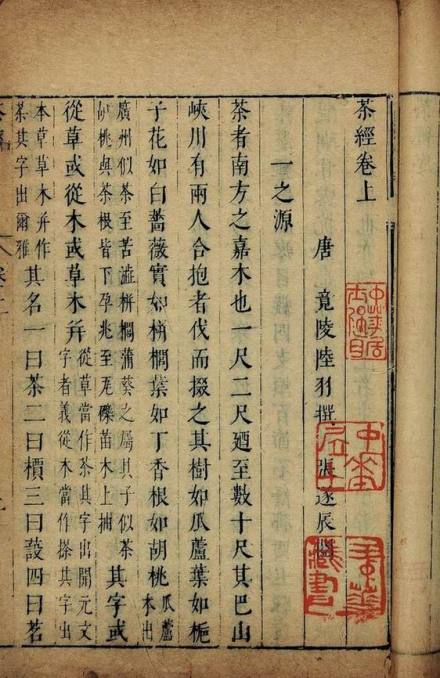 茶經卷上
唐 竟陵陸羽撰 張遂辰閱
一之源
茶者南方之嘉木也一尺二尺廼至數十尺其巴山
峽川有兩人合抱者伐而掇之其樹如瓜蘆葉如梔
子花如白薔薇實如栟櫚葉如丁香根如胡桃瓜蘆木出
廣州似茶至苦澁栟櫚蒲葵之屬其子似茶胡桃與茶根皆下孕兆至瓦礫苗木上抽其字或
從草或從木或草木并從草當作茶其字出開元文字者義從木當作搽其字出
本草草木并作茶其字出爾雅其名一曰茶二曰檟三曰蔎四曰茗